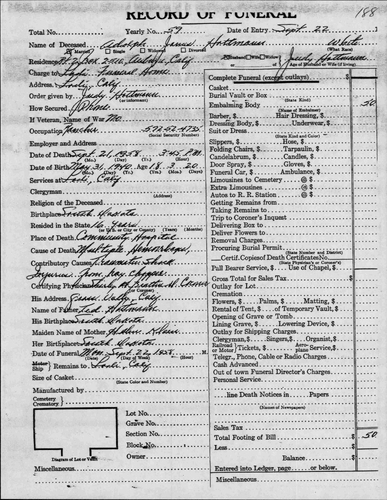 RECORD OF FUNERAL
188
Total No. Yearly No. 59 Date of Entry Sept. 22
Name of Deceased Adolph James Hottmann White
(What Race)
Married Single Widowed Divorced Judy Hottmann
(Age of Husband or Wife if Living)
Residence Rt 2 Box 2410, Auburn, Calif
Charge to Lodi Funeral Home
Address Lodi, Calif
Order given by Judy Hottmann
(or informant)
How Secured Phone
If Veteran, Name of War No
Occupation 572-52-4735
Employer and Address
Date of Death Sept. 21, 1958 3:45 P.M.
Date of Birth May 31, 1940 Age 18 3 20
Services at Lodi, Calif
Clergyman
Religion of the Deceased
Birthplace South Dakota
Resided in the State 16 Years
Place of Death Community Hospital
Cause of Death Multiple Hemorrhages,
Contributory Causes Traumatic Shock
Injuries from Hay Chopper
Certifying Physician Coroner
His Address Grass Valley, Calif
Name of Father Ted Hottmann
His Birthplace South Dakota
Maiden Name of Mother Klein
Her Birthplace South Dakota
Date of Funeral Mon. Sept 22 1958 M.
Motor/Ship Remains to Lodi, Calif
Size of Casket
(State Color and Number)
Manufactured by
Cemetery
Crematory
Lot No.
Grave No.
Section No.
Block No.
Owner
Diagram of Lot or Vault
Miscellaneous
Complete Funeral (except outlays) $
Casket
Burial Vault or Box
(State Kind)
Embalming Body 50
Barber, $ Hair Dressing, $
Dressing Body, $ Underwear, $
Suit or Dress
(State Kind and Color)
Slippers, $ Hose, $
Folding Chairs, $ Tarpaulin, $
Candelabrum, $ Candles, $
Door Spray, $ Gloves, $
Funeral Car, $ Ambulance, $
Limousines to Cemetery @ $
Extra Limousines @ $
Autos to R. R. Station @ $
Getting Remains from
Taking Remains to
Trip to Coroner's Inquest
Delivering Box to
Deliver Flowers to
Removal Charges
Procuring Burial Permit
(State Number and District)
Certif. Copies of Death Certificates No.
(State Physician's or Coroner's)
Pall Bearer Service, $ Use of Chapel, $
Outlay for Lot
Cremation
Flowers, $ Palms, $ Matting, $
Rental of Tent, $ of Temporary Vault, $
Opening of Grave or Tomb
Lining Grave, $ Lowering Device, $
Outlay for Shipping Charges
Clergyman, $ Singers, $ Organist, $
Railroad or Motor Tickets, $ Aero-plane Service, $
Telegr., Phone, Cable or Radio Charges
Cash Advanced
Out of town Funeral Director's Charge
Personal Service
line Death Notices in Papers
(Names of Newspapers)
Sales Tax
Total Footing of Bill $ 50
Less
Balance
Entered into Ledger, page or below
Miscellaneous